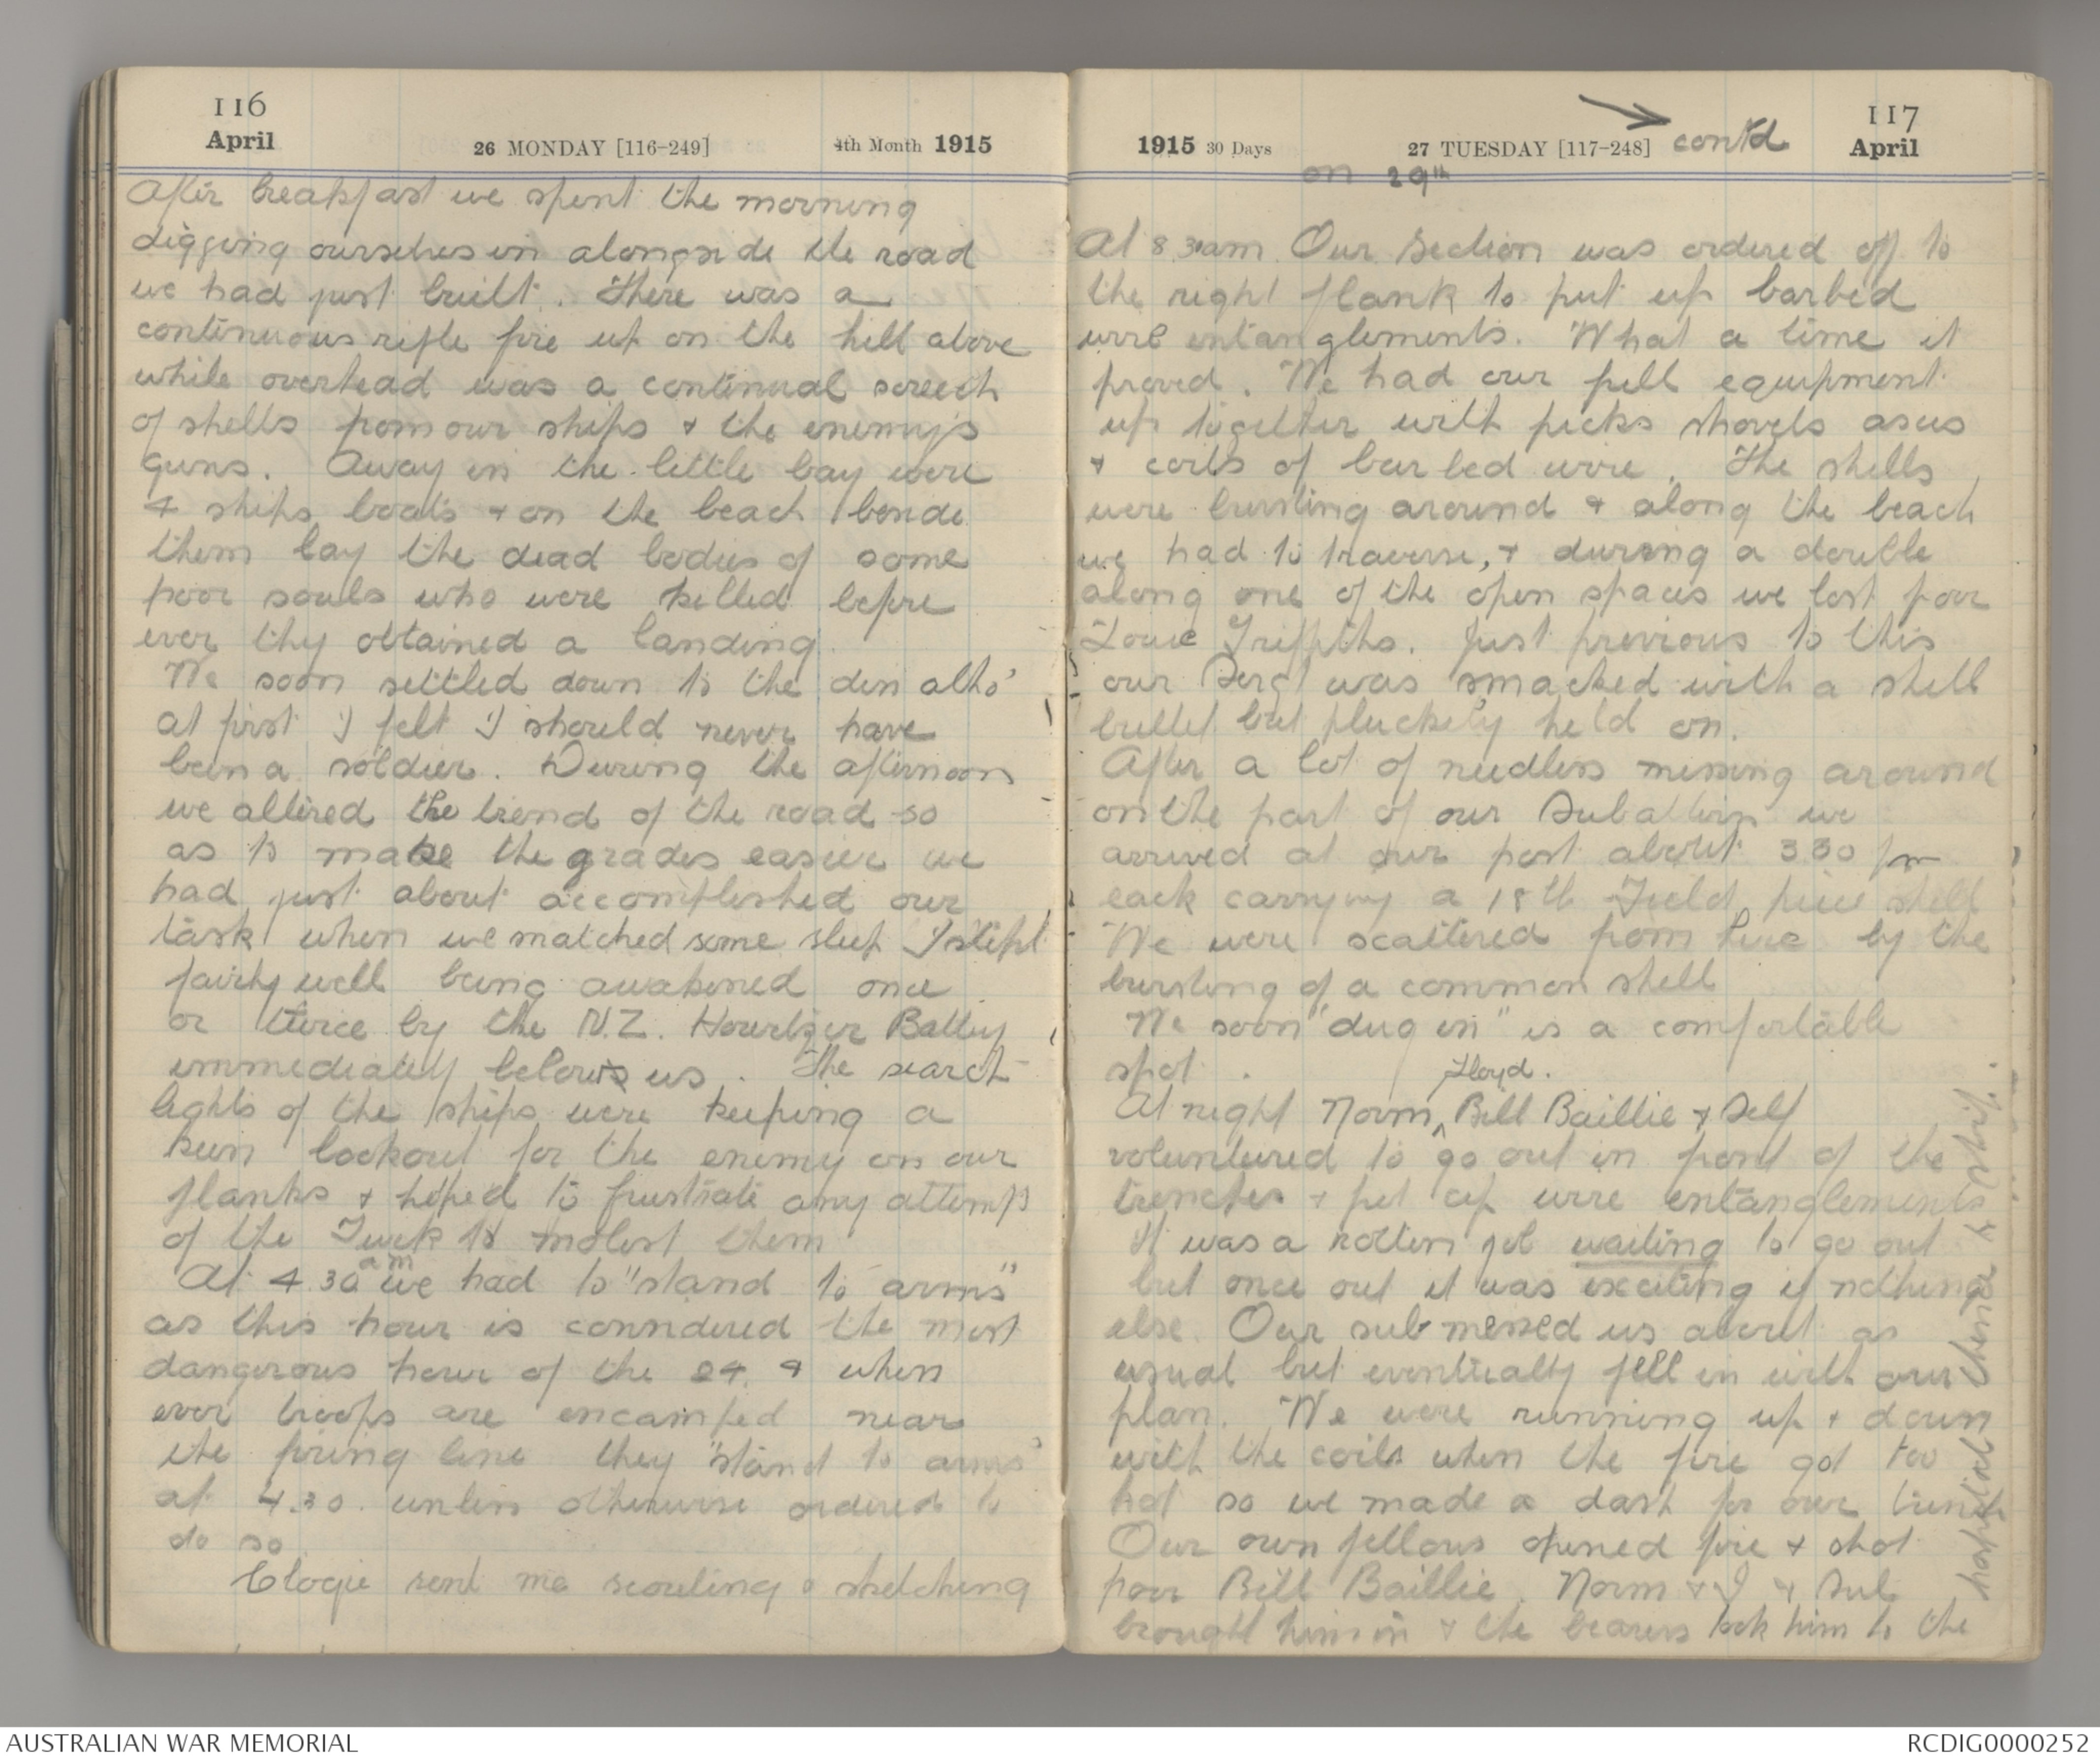 116
April
26 MONDAY [116-249]
4th Month 1915
After breakfast we spent the morning
digging ourselves in alongside the road
we had just built. There was a
continuous rifle fire up on the hill above
while overhead was a continual screech
of shells from our ships & the enemy's
guns. Away in the little bay were
4 ships boats & on the beach beside
them lay the dead bodies of some
poor souls who were killed before
ever they obtained a landing.
We soon settled down to the din altho'
at first I felt I should never have
been a soldier. During the afternoon
we altered the trend of the road so
as to make the grades easier we
had just about accomplished our
task when we snatched some sleep I slept
fairly well being awakened once
or twice by the N.Z. Howitzer Battery
immediately below us. The search
lights of the ships were keeping a
keen lookout for the enemy on our
flanks & helped to frustrate any attempts
of the Turk to molest them
At 4.30 am we had to "stand to arms"
as this hour is considered the most
dangerous hour of the 24. & when
ever troops are encamped near
the firing line they "stand to arms"
at 4.30. unless otherwise ordered to
do so
Clogie sent me scouting & sketching
1915 30 Days
27 TUESDAY [117-248]
cont'd
117
April
on 29th
At 8.30am. Our Section was ordered off to
the right flank to put up barbed
wire entanglements. What a time it
proved. We had our full equipment
up together with picks shovels axes
& coils of barbed wire. The shells
were bursting around & along the beach
we had to traverse, & during a double
along one of the open spaces we lost poor
Louie Griffiths. Just previous to this
our Sergt was smacked with a shell
bullet but pluckily held on.
After a lot of needless messing around
on the part of our Subaltern we
arrived at our post about 3.30 pm
each carrying a 18 lb Field piece shell
We were scattered from here by the
bursting of a common shell
We soon "dug in" is a comfortable
spot.
At night Norm Lloyd. Bill Baillie & Self
volunteered to go out in front of the
trenches & put up wire entanglements
It was a rotten job waiting to go out
but once out it was exciting if nothing
else. Our sub messed us about as
usual but eventually fell in with our
plan. We were running up & down
with the coils when the fire got too
hot so we made a dash for our trench
Our own fellows opened fire & shot
poor Bill Baillie. Norm & I & Sub
brought him in & the bearers took him to the
hospital thence to ship.
AUSTRALIAN WAR MEMORIAL
RCDIG0000252